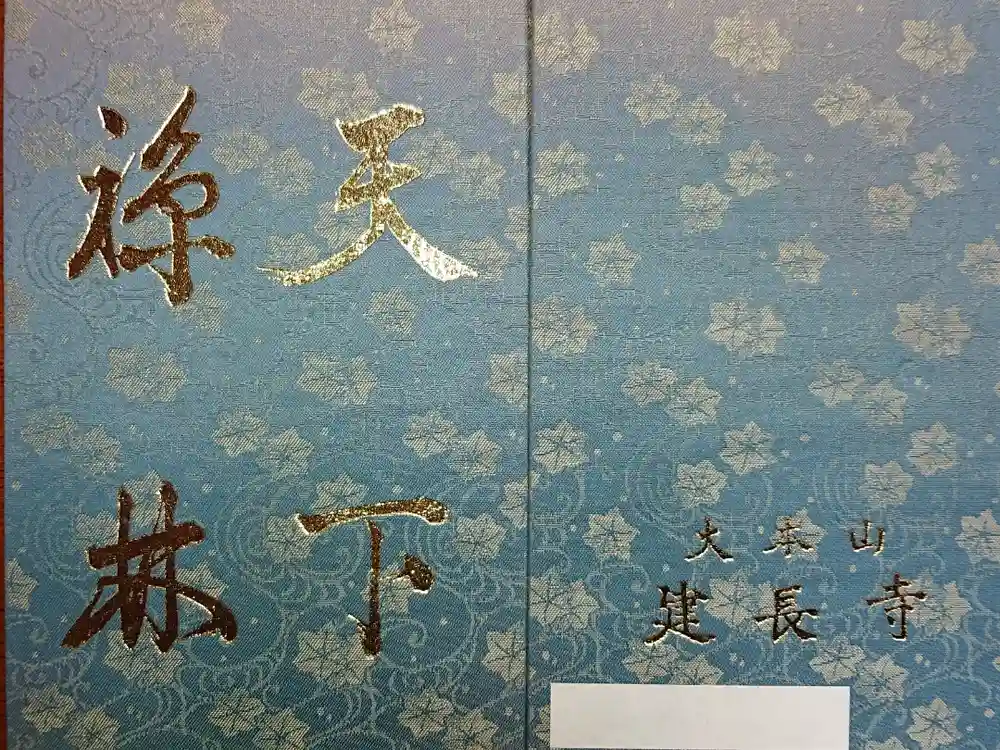 天下
禅林
大本山
建長寺